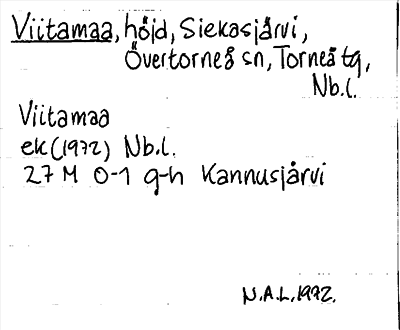 Viitamaa, höjd, Siekasjärvi,
Övertorneå sn, Torneå tg,
Nb.l.
Viitamaa
ek (1972) Nb.l.
27 M 0-1 g-h Kannusjärvi
N.A.L. 1992.